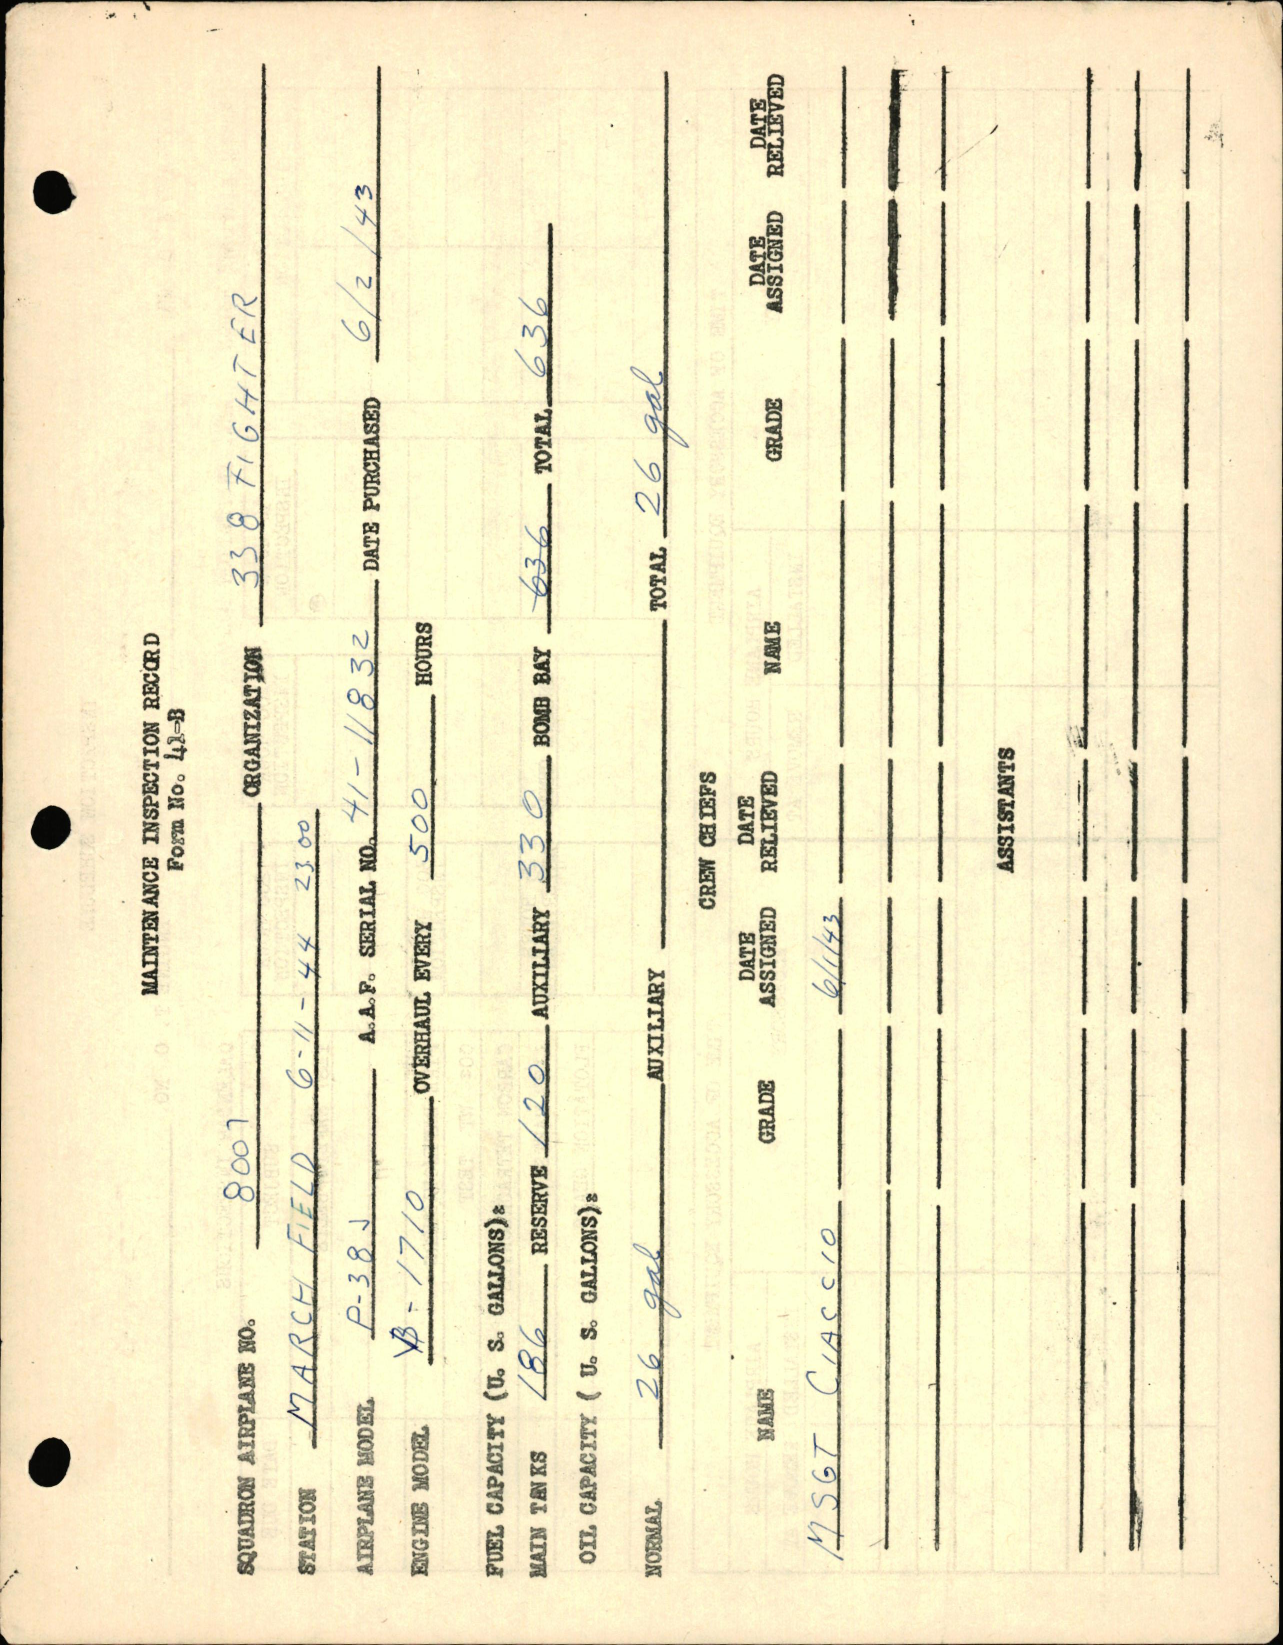 MAINTENANCE INSPECTION RECORD
Form No. 41-B
SQUADRON AIRPLANE NO. 8007 ORGANIZATION 338 FIGHTER
STATION MARCH FIELD 6-11-44 2300
AIRPLANE MODEL P-38J A.A.F. SERIAL NO. 41-11832 DATE PURCHASED 6/2/43
ENGINE MODEL VB-1710 OVERHAUL EVERY 500 HOURS
FUEL CAPACITY (U. S. GALLONS):
MAIN TANKS 186 RESERVE 120 AUXILIARY 330 BOMB BAY 636 TOTAL 636
OIL CAPACITY ( U. S. GALLONS):
NORMAL 26 gal AUXILIARY TOTAL 26 gal
CREW CHIEFS
NAME GRADE DATE ASSIGNED DATE RELIEVED NAME GRADE DATE ASSIGNED DATE RELIEVED
MSGT CIASCIO 6/1/43
ASSISTANTS